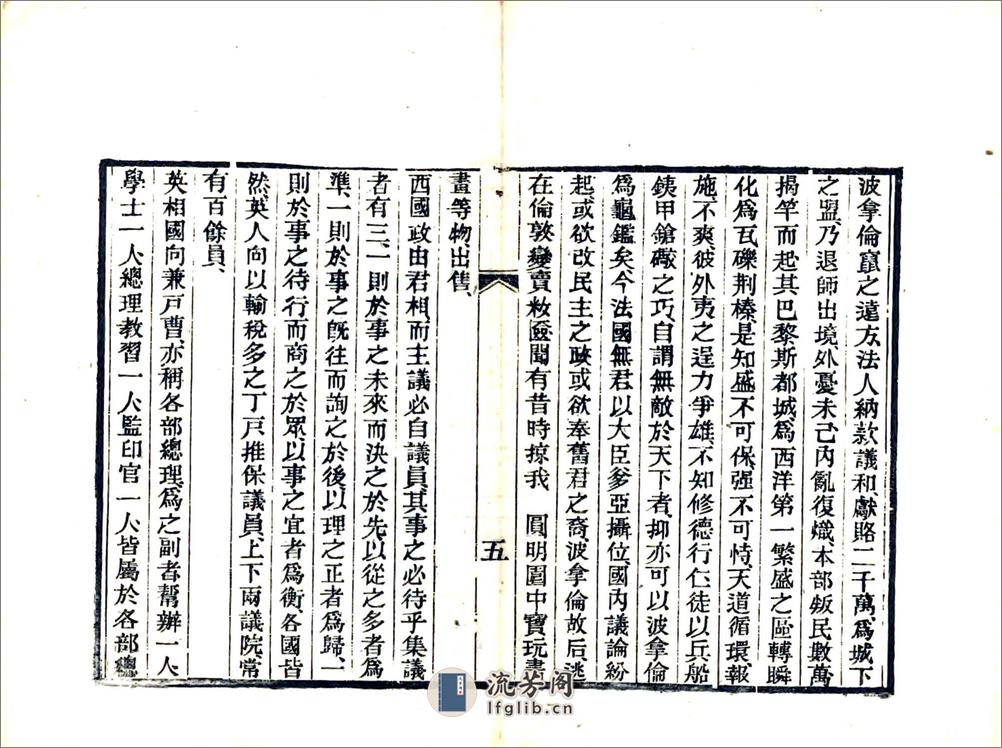 波拿倫竄之遠方法人納款議和獻賂二千萬、為城下
之盟、乃退師出境、外憂未已、內亂復熾、本部叛民數萬
揭竿而起、其巴黎斯都城、為西洋第一繁盛之區、轉瞬
化為瓦礫荆榛、是知盛不可保、强不可恃、天道循環、報
施不爽、彼外夷之逞力爭雄、不知修德行仁、徒以兵船
銕甲鎗礮之巧、自謂無敵於天下者、抑亦可以波拿倫
為龜鑑矣、今法國無君、以大臣爹亞攝位、國內議論紛
起、或欲改民主之政、或欲奉舊君之裔、波拿倫故后逃
在倫敦、變賣妝匳、聞有昔時掠我　圓明園中寶玩書
畫等物、出售、
西國政由君相、而主議必自議員、其事之必待乎集議
者有三、一則於事之未來而決之於先、以從之多者為
準、一則於事之既往而詢之於後、以理之正者為歸、一
則於事之待行而商之於眾、以事之宜者為衡、各國皆
然、英人向以輸稅多之丁戸、推保議員、上下兩議院、常
有百餘員、
英相國向兼戸曹、亦稱各部總理、為之副者、幫辦一人
學士一人、總理教習一人、監印官一人、皆屬於各部總
五
流芳阁
lfglib.cn